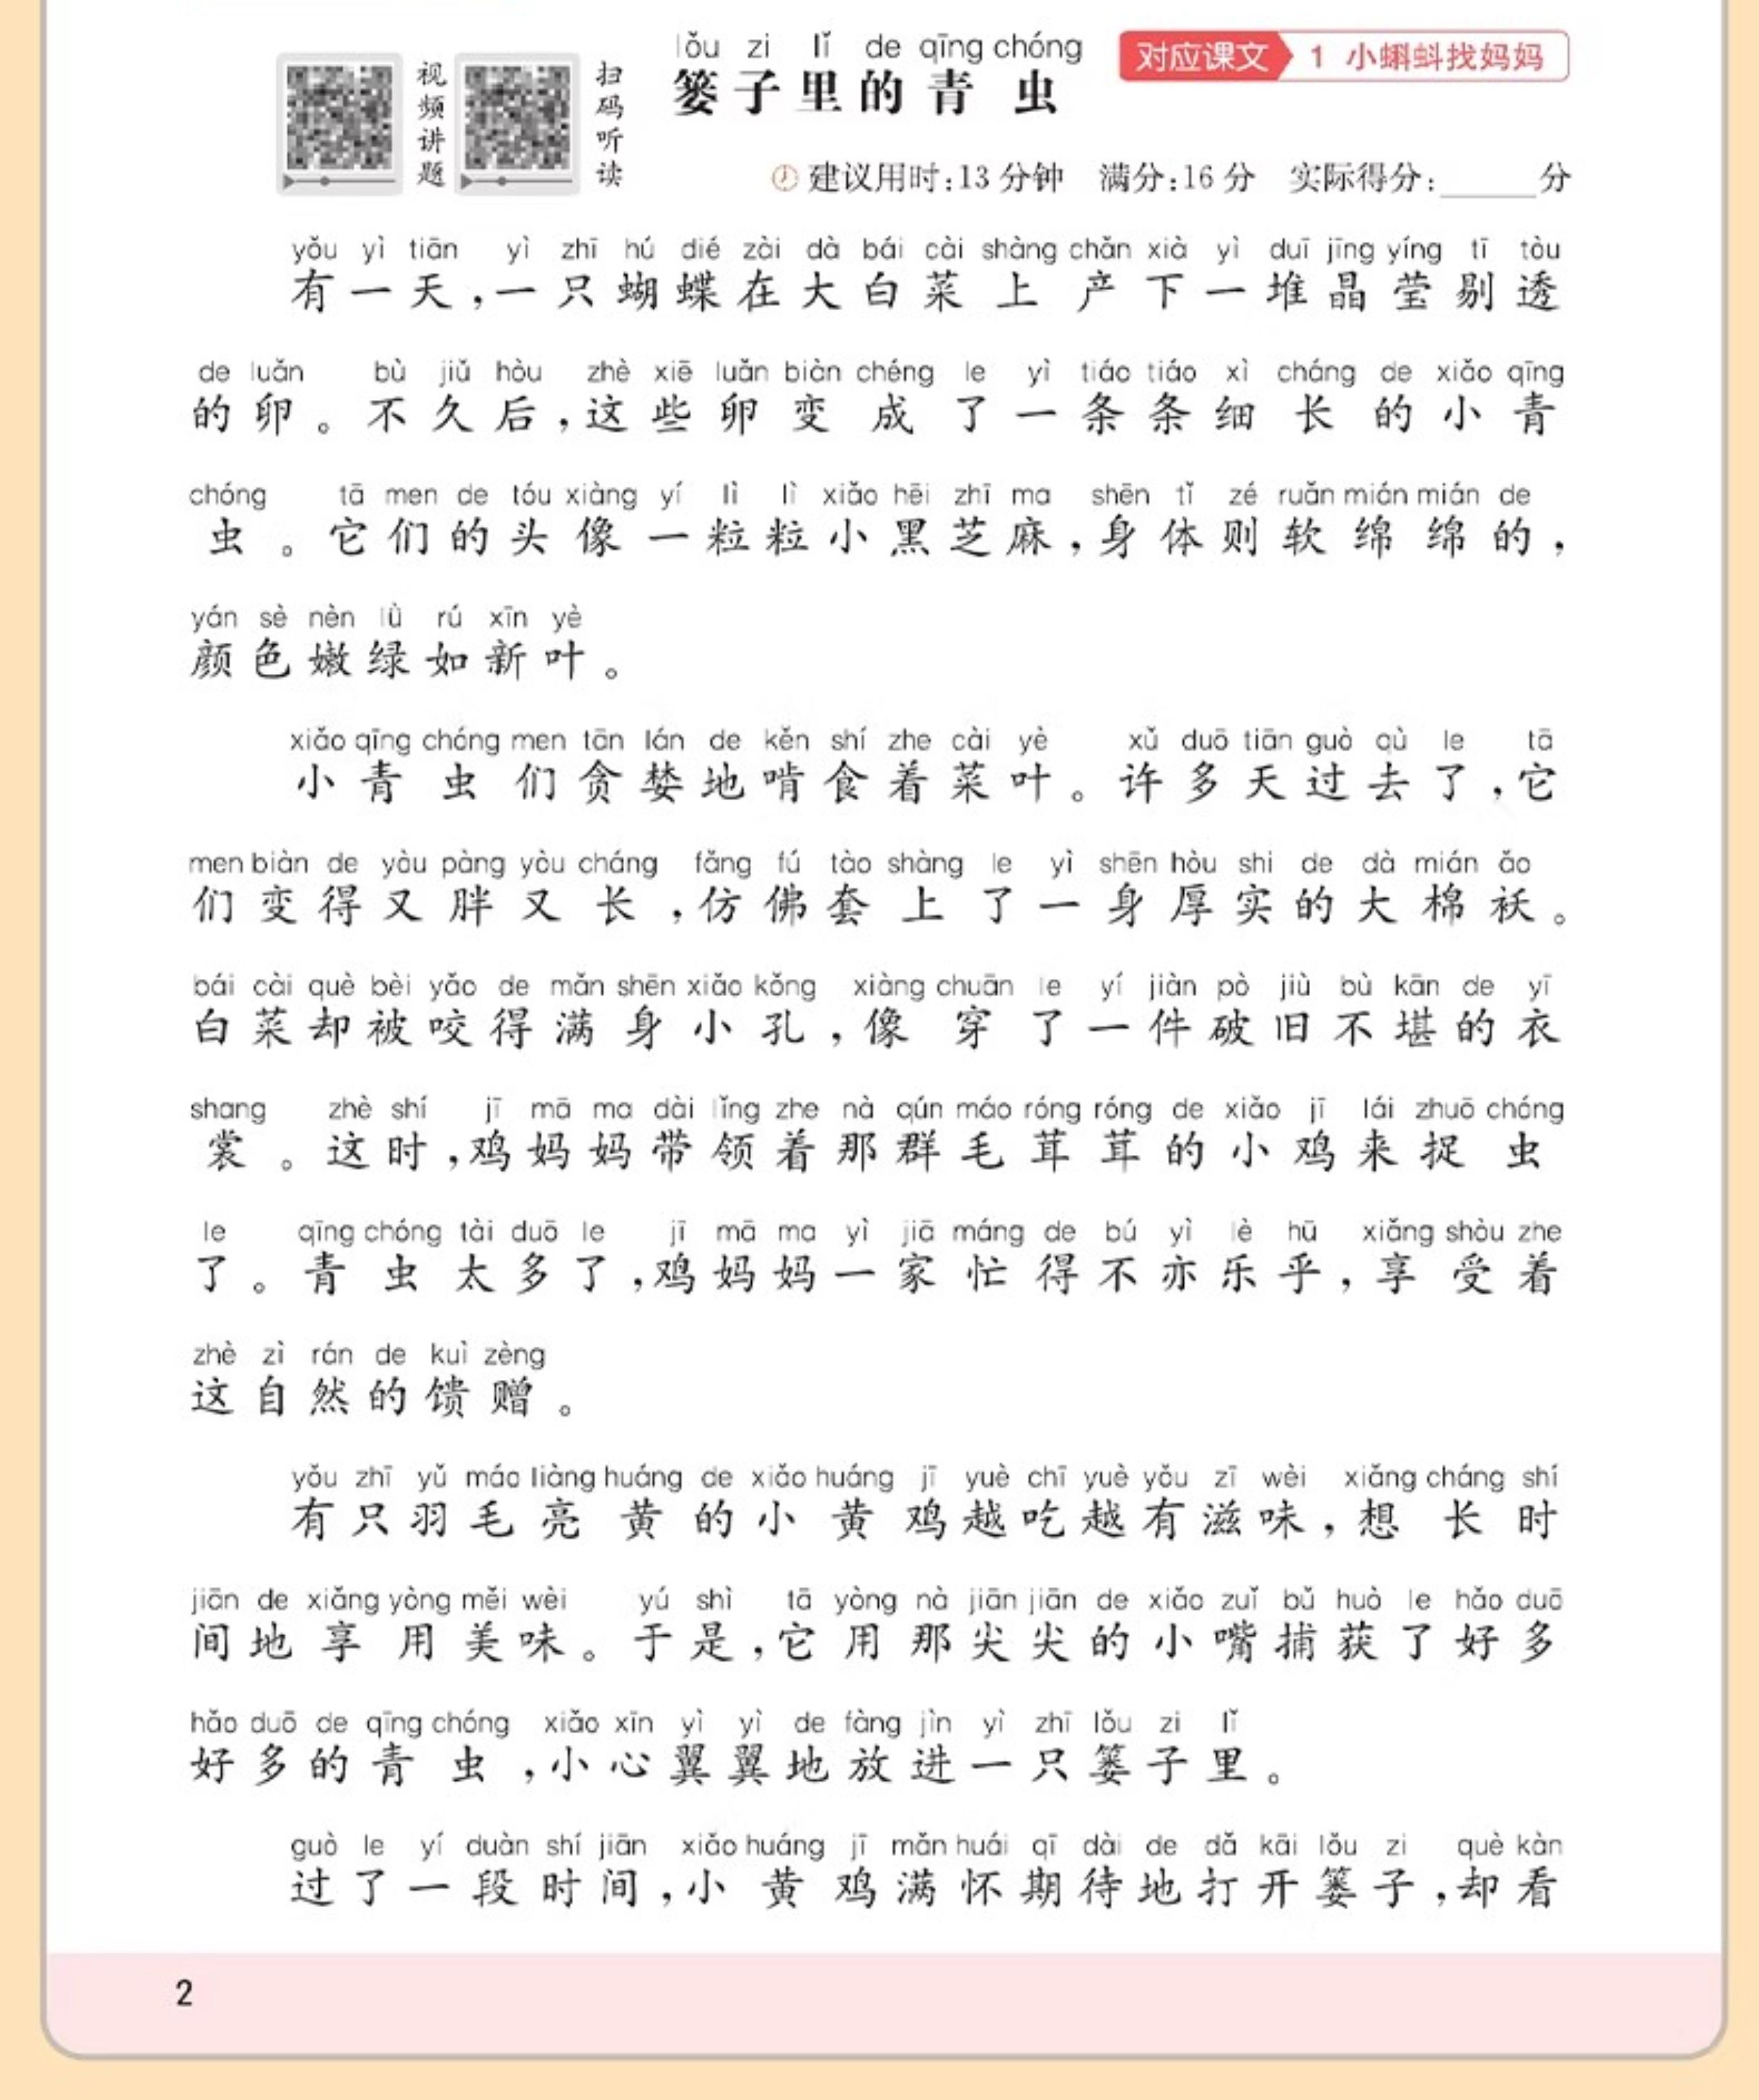 lǒu zi lǐ de qīng chóng
篓子里的青虫
对应课文 1 小蝌蚪找妈妈
视频讲题
扫码听读
建议用时:13分钟 满分:16分 实际得分:______分
yǒu yì tiān yì zhī hú dié zài dà bái cài shàng chǎn xià yì duī jīng yíng tī tòu
有一天,一只蝴蝶在大白菜上产下一堆晶莹剔透
de luǎn bù jiǔ hòu zhè xiē luǎn biàn chéng le yì tiáo tiáo xì cháng de xiǎo qīng
的卵。不久后,这些卵变成了一条条细长的小青
chóng tā men de tóu xiàng yí lì lì xiǎo hēi zhī ma shēn tǐ zé ruǎn mián mián de
虫。它们的头像一粒粒小黑芝麻,身体则软绵绵的,
yán sè nèn lǜ rú xīn yè
颜色嫩绿如新叶。
xiǎo qīng chóng men tān lán de kěn shí zhe cài yè xǔ duō tiān guò qù le tā
小青虫们贪婪地啃食着菜叶。许多天过去了,它
men biàn de yòu pàng yòu cháng fǎng fú tào shàng le yì shēn hòu shi de dà mián ǎo
们变得又胖又长,仿佛套上了一身厚实的大棉袄。
bái cài què bèi yǎo de mǎn shēn xiǎo kǒng xiàng chuān le yí jiàn pò jiù bù kān de yī
白菜却被咬得满身小孔,像穿了一件破旧不堪的衣
shang zhè shí jī mā ma dài lǐng zhe nà qún máo róng róng de xiǎo jī lái zhuō chóng
裳。这时,鸡妈妈带领着那群毛茸茸的小鸡来捉虫
le qīng chóng tài duō le jī mā ma yì jiā máng de bú yì lè hū xiǎng shòu zhe
了。青虫太多了,鸡妈妈一家忙得不亦乐乎,享受着
zhè zì rán de kuì zèng
这自然的馈赠。
yǒu zhī yǔ máo liàng huáng de xiǎo huáng jī yuè chī yuè yǒu zī wèi xiǎng cháng shí
有只羽毛亮黄的小黄鸡越吃越有滋味,想长时
jiān de xiǎng yòng měi wèi yú shì tā yòng nà jiān jiān de xiǎo zuǐ bǔ huò le hǎo duō
间地享用美味。于是,它用那尖尖的小嘴捕获了好多
hǎo duō de qīng chóng xiǎo xīn yì yì de fàng jìn yì zhī lǒu zi lǐ
好多的青虫,小心翼翼地放进一只篓子里。
guò le yí duàn shí jiān xiǎo huáng jī mǎn huái qī dài de dǎ kāi lǒu zi què kàn
过了一段时间,小黄鸡满怀期待地打开篓子,却看
2